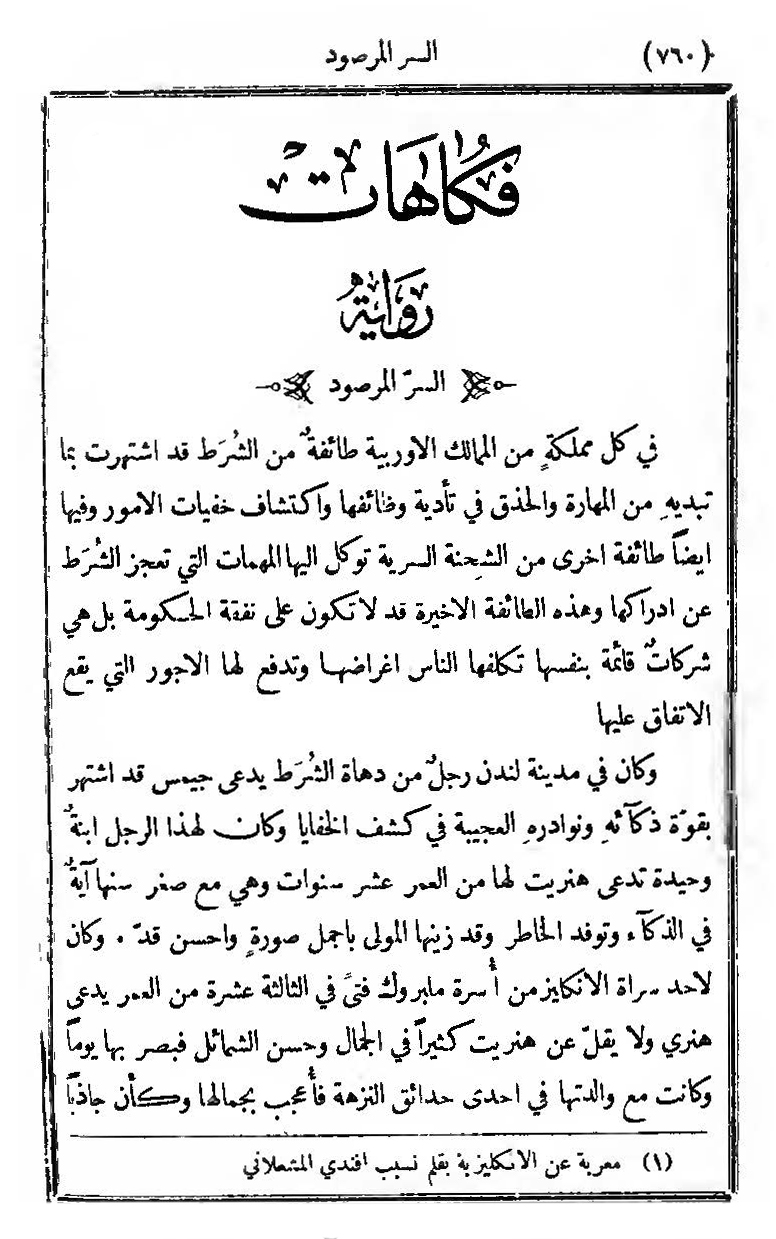 (٧٦٠) السر المرصود
فكاهات
رواية
السرّ المرصود
في كل مملكةٍ من الممالك الاوربية طائفةٌ من الشُرَط قد اشتهرت بما
تبديهِ من المهارة والحذق في تأدية وظائفها واكتشاف خفيات الامور وفيها
ايضاً طائفة اخرى من الشحنة السرية توكل اليها المهمات التي تعجز الشُرَط
عن ادراكها وهذه الطائفة الاخيرة قد لا تكون على نفقة الحكومة بل هي
شركاتٌ قائمة بنفسها تكلفها الناس اغراضها وتدفع لها الاجور التي يقع
الاتفاق عليها
وكان في مدينة لندن رجلٌ من دهاة الشُرَط يدعى جيمس قد اشتهر
بقوّة ذكآئهِ ونوادره العجيبة في كشف الخفايا وكان لهذا الرجل ابنةٌ
وحيدة تدعى هنريت لها من العمر عشر سنوات وهي مع صغر سنها آيةٌ
في الذكآء وتوقد الخاطر وقد زينها المولى باجمل صورةٍ واحسن قدّ . وكان
لاحد سراة الانكليز من أُسرة ملبروك فتىً في الثالثة عشرة من العمر يدعى
هنري ولا يقلّ عن هنريت كثيراً في الجمال وحسن الشمائل فبصر بها يوماً
وكانت مع والدتها في احدى حدائق النزهة فأُعجب بجمالها وكأن جاذباً
(١) معربة عن الانكليزية بقلم نسيب افندي المشعلاني